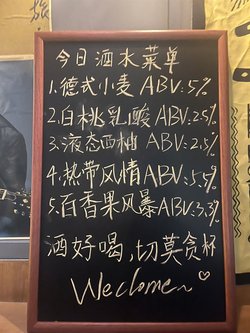 今日酒水菜单
1.德式小麦 ABV:5%
2.白桃乳酸 ABV:2.5%
3.液态西柚 ABV:2.5%
4.热带风情 ABV:5.5%
5.百香果风暴 ABV:3.3%
酒好喝,切莫贪杯
Welcome~